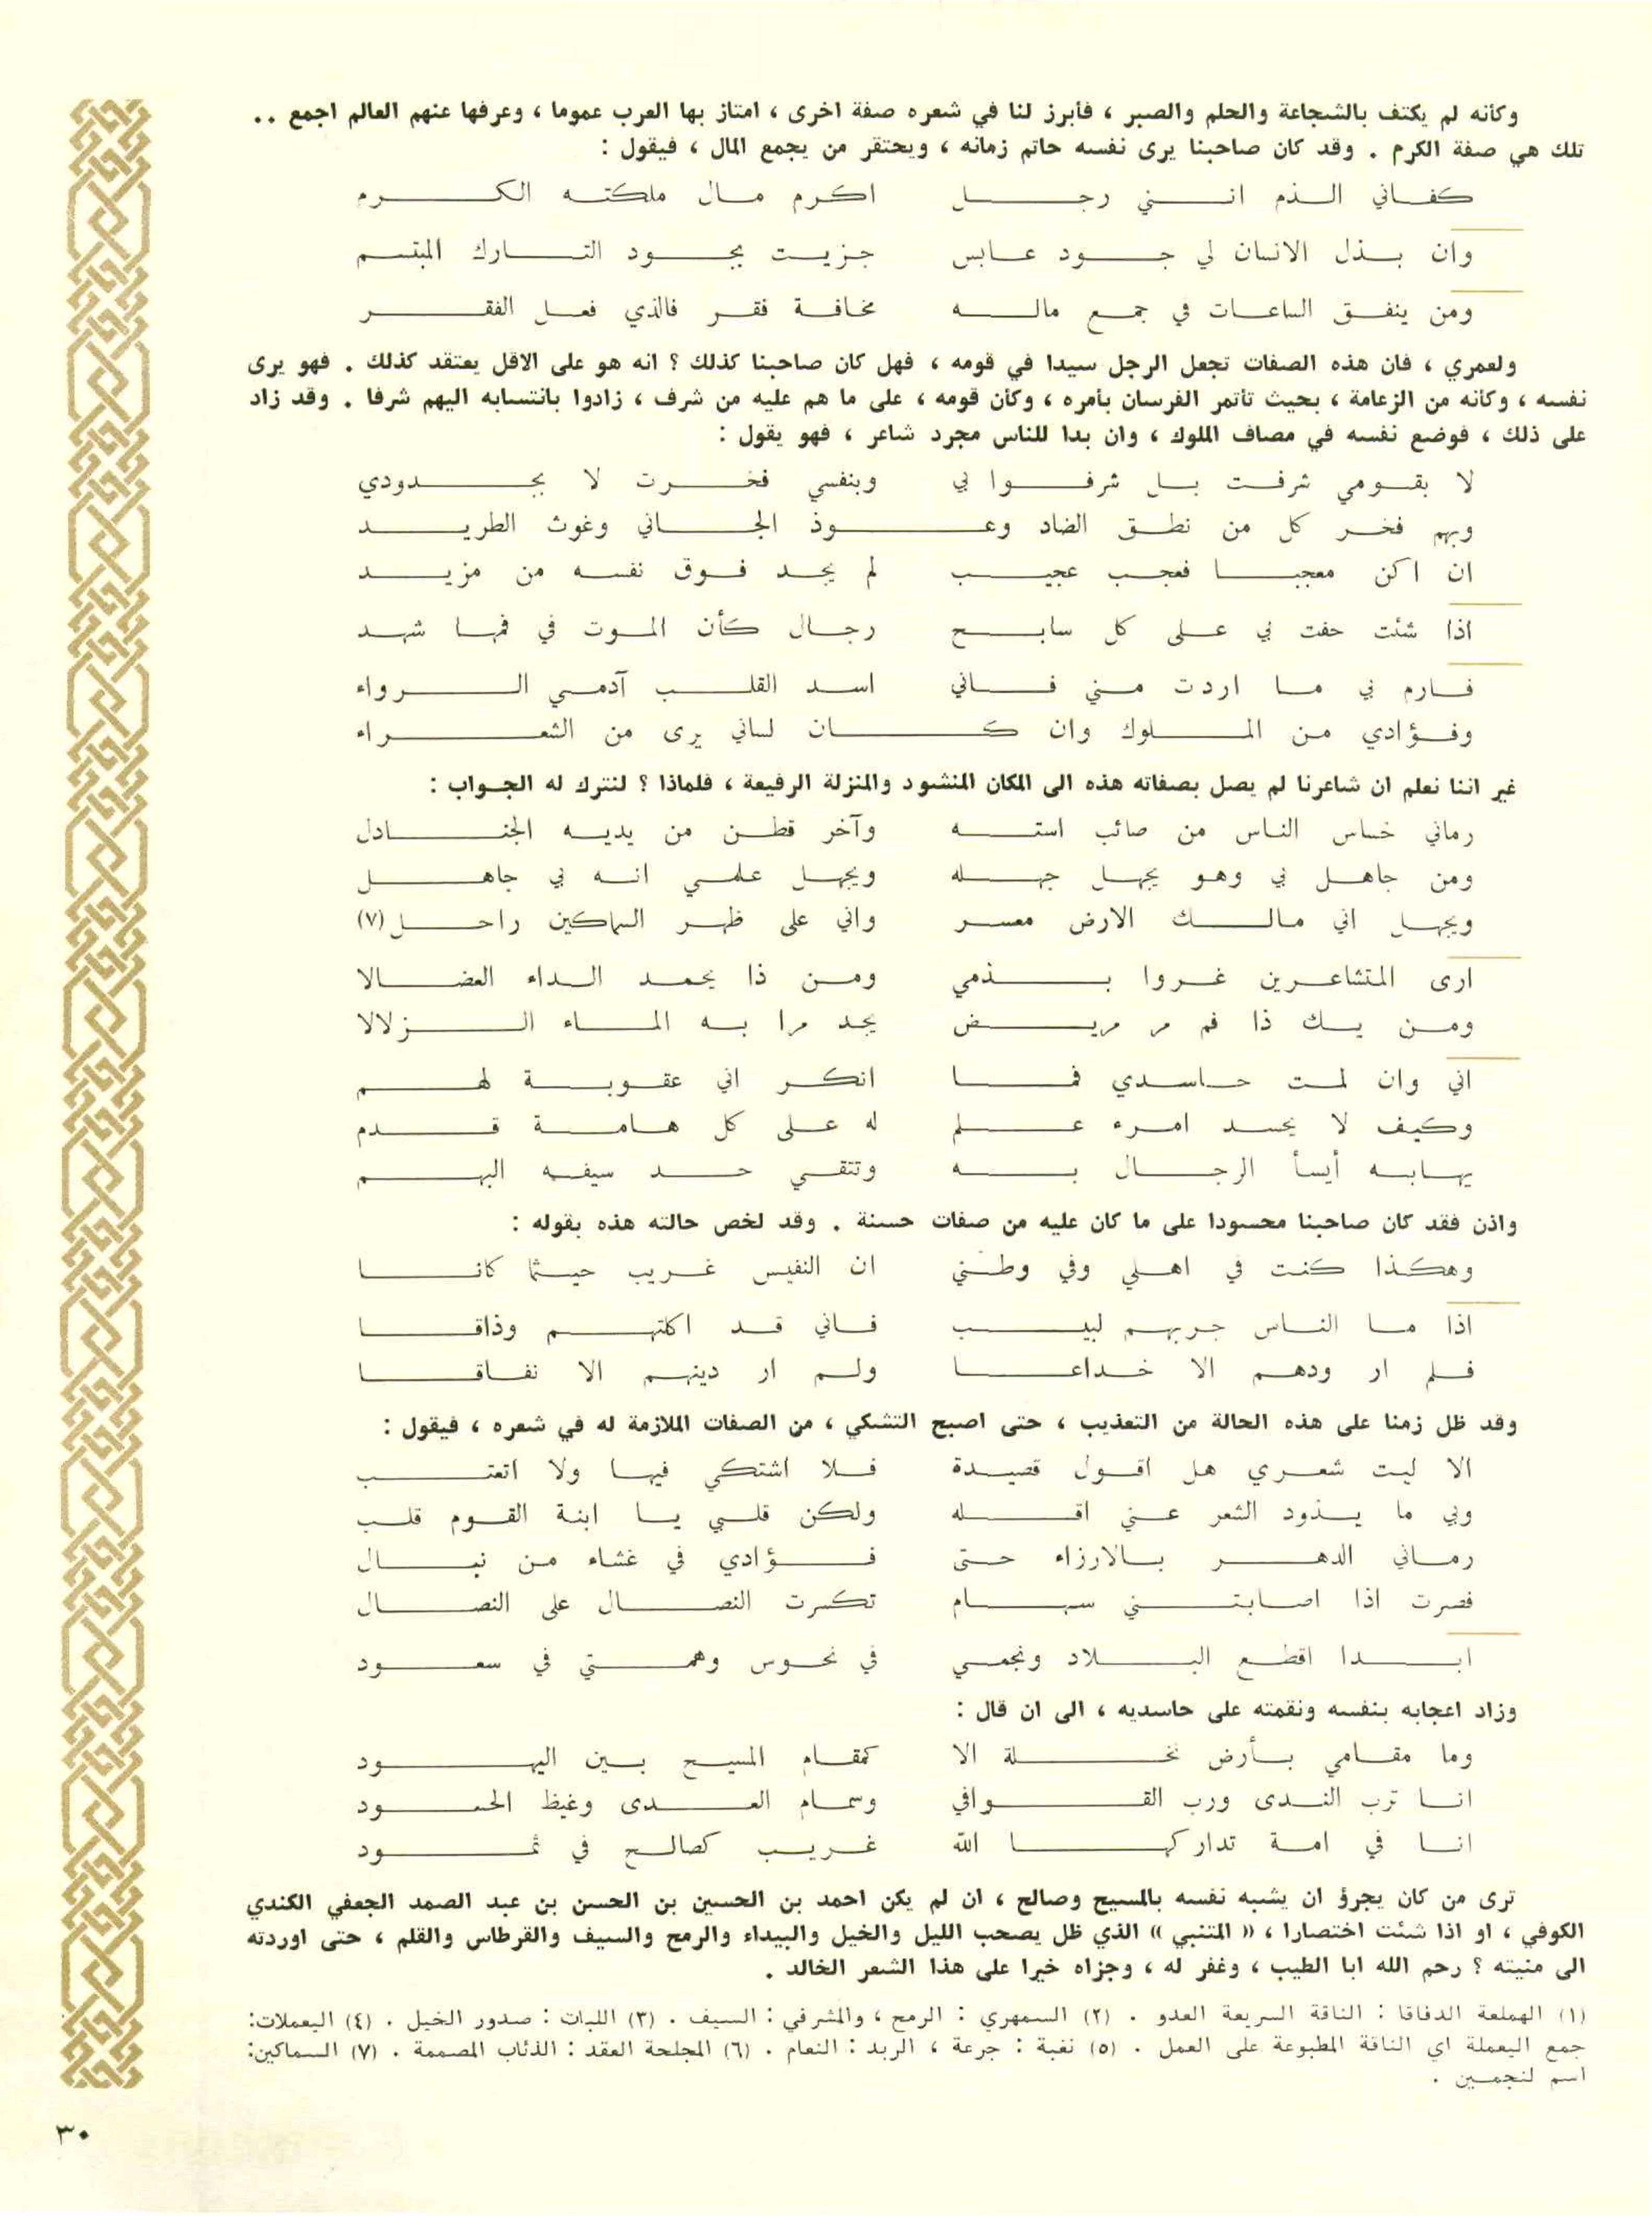 وكأنه لم يكتف بالشجاعة والحلم والصبر ، فأبرز لنا في شعره صفة اخرى ، امتاز بها العرب عموما ، وعرفها عنهم العالم اجمع ..
تلك هي صفة الكرم . وقد كان صاحبنا يرى نفسه حاتم زمانه ، ويحتقر من يجمع المال ، فيقول :
كفاني الذم انني رجل اكرم مال ملكته الكرم
وان بذل الانسان لي جود عابس جزيت بجود التارك المبتسم
ومن ينفق الساعات في جمع ماله مخافة فقر فالذي فعل الفقر
ولعمري ، فان هذه الصفات تجعل الرجل سيدا في قومه ، فهل كان صاحبنا كذلك ؟ انه هو على الاقل يعتقد كذلك . فهو يرى
نفسه ، وكأنه من الزعامة ، بحيث تأتمر الفرسان بأمره ، وكأن قومه ، على ما هم عليه من شرف ، زادوا بانتسابه اليهم شرفا . وقد زاد
على ذلك ، فوضع نفسه في مصاف الملوك ، وان بدا للناس مجرد شاعر ، فهو يقول :
لا بقومي شرفت بل شرفوا بي وبنفسي فخرت لا بجدودي
وبهم فخر كل من نطق الضاد وعوذ الجاني وغوث الطريد
ان اكن معجبا فعجب عجيب لم يجد فوق نفسه من مزيد
اذا شئت حفت بي على كل سابح رجال كأن الموت في فمها شهد
فارم بي ما اردت مني فاني اسد القلب آدمي الرواء
وفؤادي من الملوك وان كان لساني يرى من الشعراء
غير اننا نعلم ان شاعرنا لم يصل بصفاته هذه الى المكان المنشود والمنزلة الرفيعة ، فلماذا ؟ لنترك له الجواب :
رماني خساس الناس من صائب استه وآخر قطن من يديه الجنادل
ومن جاهل بي وهو يجهل جهله ويجهل علمي انه بي جاهل
ويجهل اني مالك الارض معسر واني على ظهر السماكين راحل (٧)
ارى المتشاعرين غروا بذمي ومن ذا يحمد الداء العضالا
ومن يك ذا فم مر مريض يجد مرا به الماء الزلالا
اني وان لمت حاسدي فما انكر اني عقوبة لهم
وكيف لا يحسد امرء علم له على كل هامة قدم
يهابه أبسأ الرجال به وتتقي حد سيفه البهم
واذن فقد كان صاحبنا محسودا على ما كان عليه من صفات حسنة . وقد لخص حالته هذه بقوله :
وهكذا كنت في اهلي وفي وطني ان النفيس غريب حيثما كانا
اذا ما الناس جربهم لبيب فاني قد اكلتهم وذاقا
فلم ار ودهم الا خداعا ولم ار دينهم الا نفاقا
وقد ظل زمنا على هذه الحالة من التعذيب ، حتى اصبح التشكي ، من الصفات الملازمة له في شعره ، فيقول :
الا ليت شعري هل اقول قصيدة فلا اشتكي فيها ولا اتعتب
وبي ما يذود الشعر عني اقله ولكن قلبي يا ابنة القوم قلب
رماني الدهر بالارزاء حتى فؤادي في غشاء من نبال
فصرت اذا اصابتني سهام تكسرت النصال على النصال
ابدا اقطع البلاد ونجمي في نحوس وهمتي في سعود
وزاد اعجابه بنفسه ونقمته على حاسديه ، الى ان قال :
وما مقامي بأرض نخلة الا كمقام المسيح بين اليهود
انا ترب الندى ورب القوافي وسمام العدى وغيظ الحسود
انا في امة تداركها الله غريب كصالح في ثمود
ترى من كان يجرؤ ان يشبه نفسه بالمسيح وصالح ، ان لم يكن احمد بن الحسين بن الحسن بن عبد الصمد الجعفي الكندي
الكوفي ، او اذا شئت اختصارا ، « المتنبي » الذي ظل يصحب الليل والخيل والبيداء والرمح والسيف والقرطاس والقلم ، حتى اوردته
الى منيته ؟ رحم الله ابا الطيب ، وغفر له ، وجزاه خيرا على هذا الشعر الخالد .
(١) الهملعة الدفاقا : الناقة السريعة العدو . (٢) السمهري : الرمح ، والمشرفي : السيف . (٣) اللبات : صدور الخيل . (٤) اليعملات:
جمع اليعملة اي الناقة المطبوعة على العمل . (٥) نغبة : جرعة ، الربد : النعام . (٦) المجلحة العقد : الذئاب المصممة . (٧) السماكين:
اسم لنجمين .
٣٠